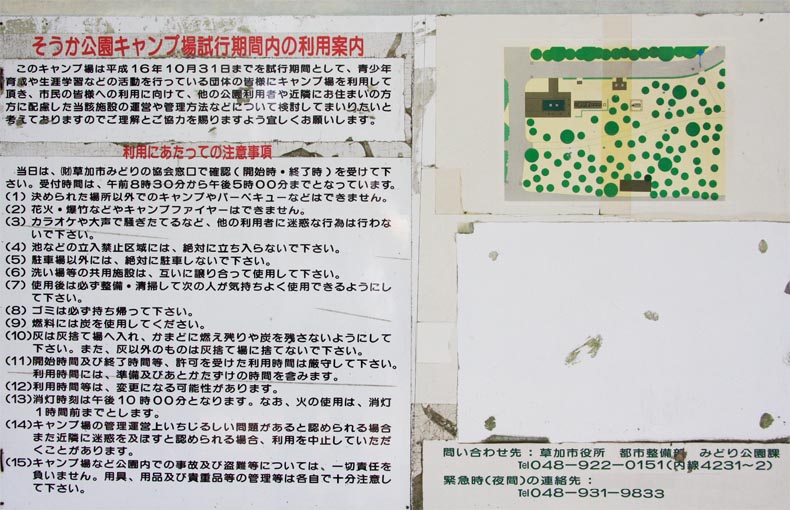 そうか公園キャンプ場試行期間内の利用案内
このキャンプ場は平成16年10月31日までを試行期間として、青少年
育成や生涯学習などの活動を行っている団体の皆様にキャンプ場を利用して
頂き、市民の皆様への利用に向けて、他の公園利用者や近隣にお住まいの方
方に配慮した当該施設の運営や管理方法などについて検討してまいりたいと
考えておりますのでご理解とご協力を賜りますよう宜しくお願いします。
利用にあたっての注意事項
当日は、㈶草加市みどりの協会窓口で確認(開始時・終了時)を受けて下
さい。受付時間は、午前8時30分から午後5時00分までとなっています。
(1) 決められた場所以外でのキャンプやバーベキューなどはできません。
(2) 花火・爆竹などやキャンプファイヤーはできません。
(3) カラオケや大声で騒ぎたてるなど、他の利用者に迷惑な行為は行わな
いで下さい。
(4) 池などの立入禁止区域には、絶対に立ち入らないで下さい。
(5) 駐車場以外には、絶対に駐車しないで下さい。
(6) 洗い場等の共用施設は、互いに譲り合って使用して下さい。
(7) 使用後は必ず整備・清掃して次の人が気持ちよく使用できるようにし
て下さい。
(8) ゴミは必ず持ち帰って下さい。
(9) 燃料には炭を使用してください。
(10) 灰は灰捨て場へ入れ、かまどに燃え残りや炭を残さないようにして
下さい。また、灰以外のものは灰捨て場に捨てないで下さい。
(11) 開始時間及び終了時間等、許可を受けた利用時間は厳守して下さい。
利用時間には、準備及びあとかたずけの時間を含みます。
(12) 利用時間等は、変更になる可能性があります。
(13) 消灯時刻は午後10時00分となります。なお、火の使用は、消灯
1時間前までとします。
(14) キャンプ場の管理運営上いちじるしい問題があると認められる場合
また近隣に迷惑を及ぼすと認められる場合、利用を中止していただ
くことがあります。
(15) キャンプ場など公園内での事故及び盗難等については、一切責任を
負いません。用具、用品及び貴重品等の管理等は各自で十分注意し
て下さい。
問い合わせ先：草加市役所 都市整備部 みどり公園課
Tel048-922-0151(内線4231～2)
緊急時(夜間)の連絡先：
Tel048-931-9833